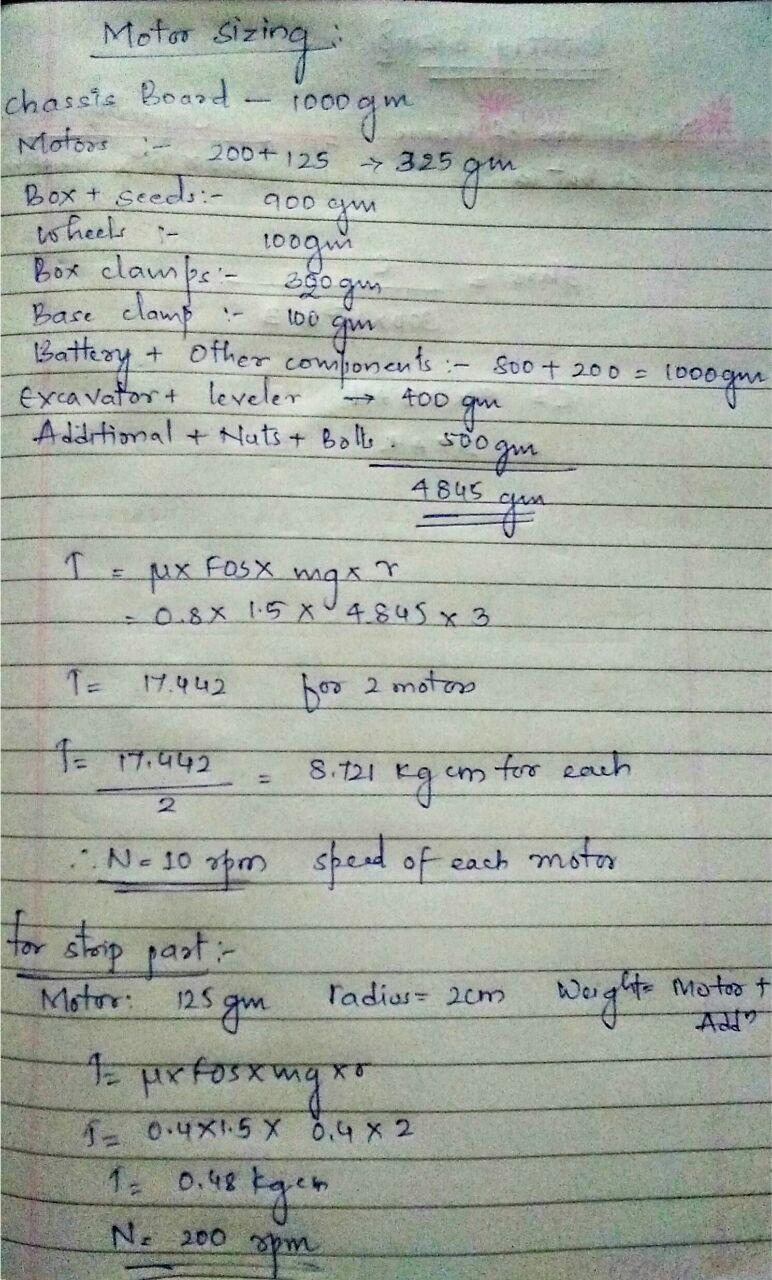 Motor sizing :
Chassis Board – 1000 gm
Motors :- 200 + 125 → 325 gm
Box + seeds :- 900 gm
Wheels :- 100 gm
Box clamps :- gm
Base clamp :- 100 gm
Battery + Other components :- 800 + 200 = 1000 gm
Excavator + leveler → 400 gm
Additional + Nuts + Bolts . 500 gm
4845 gm
T = μ x FOS x mg x r
= 0.8 x 1.5 x 4.845 x 3
T = 17.442 for 2 motors
T = 17.442 / 2 = 8.721 kg cm for each
∴ N = 10 rpm speed of each motor
for strip part :-
Motor: 125 gm radius = 2cm Weight = Motor + Addⁿ
T = μ x FOS x mg x r
T = 0.4 x 1.5 x 0.4 x 2
T = 0.48 kg cm
N = 200 rpm